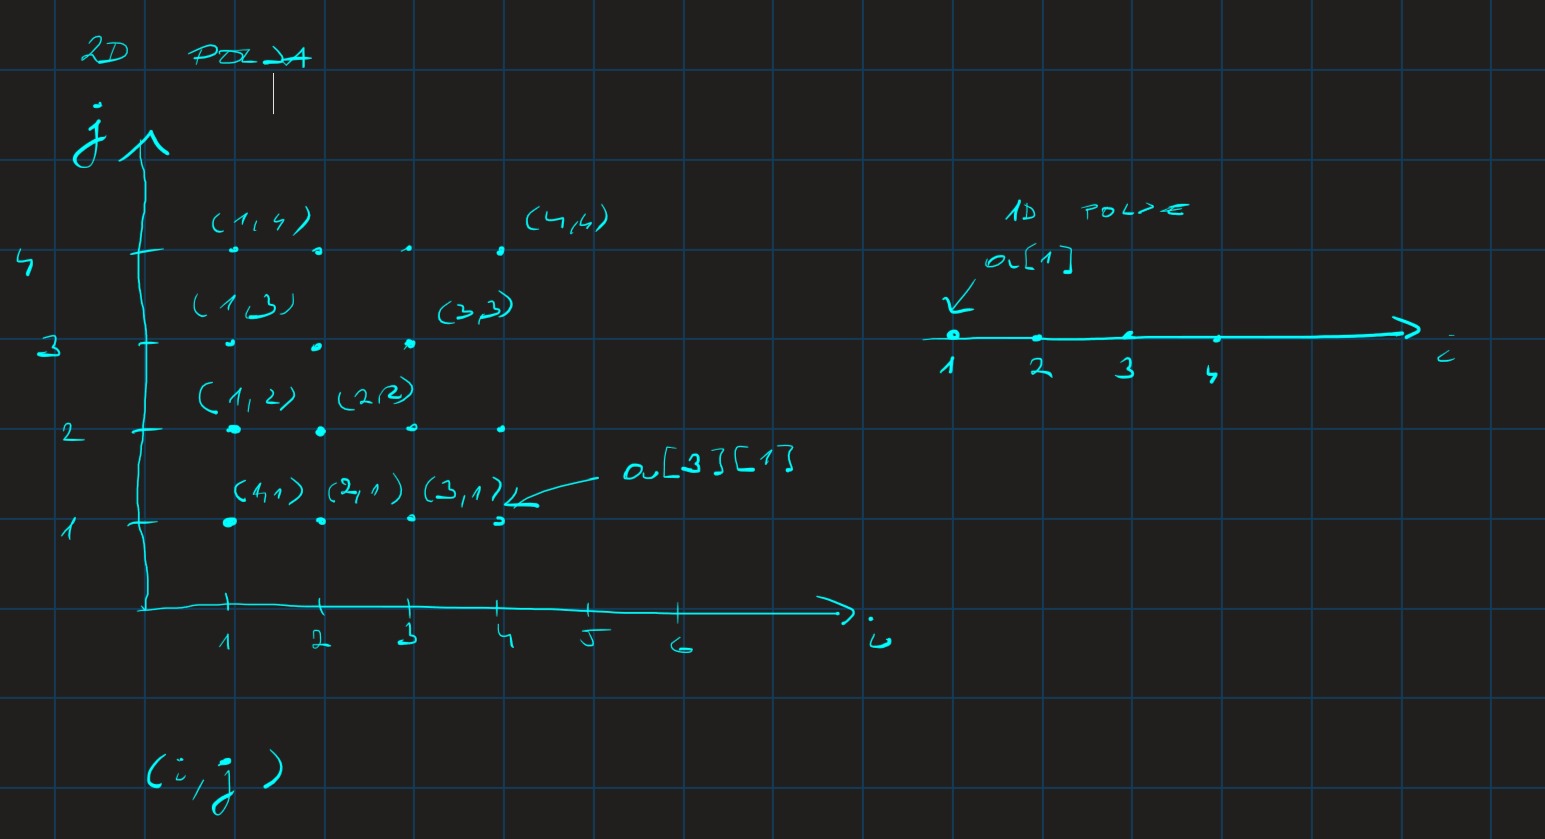 2D POLJA
j
(1,4) (4,4)
4
(1,3) (3,3)
3
(1,2) (2,2)
2
(1,1) (2,1) (3,1)
a[3][1]
1
1 2 3 4 5 6
i
(i,j)
1D POLJE
a[1]
1 2 3 4
i